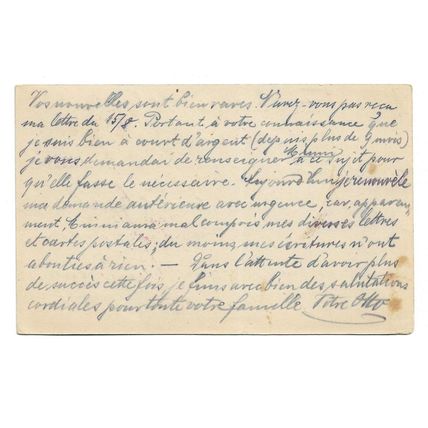 Vos nouvelles sont bien rares. N'avez-vous pas reçu
ma lettre du 15/8. Portant à votre connaissance que
je suis bien à court d'argent (depuis plus de 9 mois)
je vous demandai de renseigner Mimi à ce sujet pour
qu'elle fasse le nécessaire. Aujourd'hui je renouvelle
ma demande antérieure avec urgence, car, apparem-
ment, Mimi aura mal compris mes diverses lettres
et cartes postales; du moins, mes écritures n'ont
abouties à rien. — Dans l'attente d'avoir plus
de succès cette fois, je finis avec bien des salutations
cordiales pour toute votre famille. Votre Otto